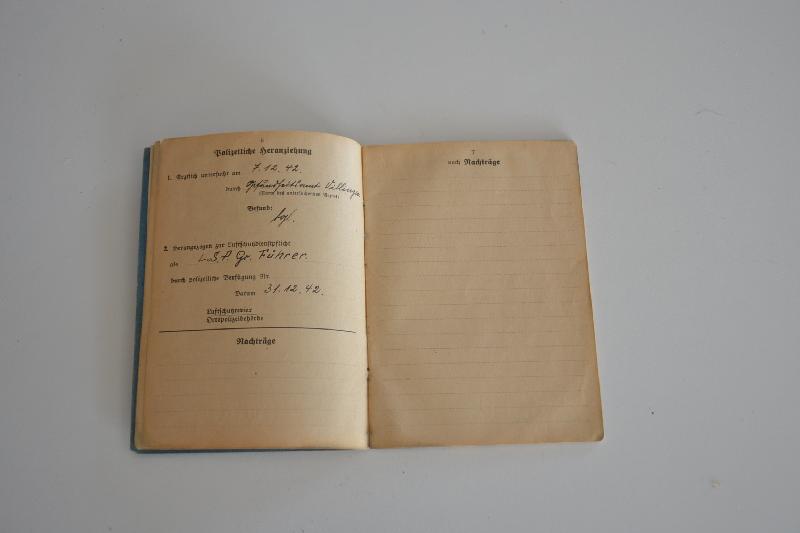 6
Polizeiliche Heranziehung
1. Ärztlich untersucht am 7.12.42.
durch Gesundheitsamt Villingen
(Name des untersuchenden Arztes)
Befund:
tgl.
2. Herangezogen zur Luftschutzdienstpflicht
als L.S.P. Gr. Führer.
durch polizeiliche Verfügung Nr.
Datum 31.12.42.
Luftschutzrevier
Ortspolizeibehörde
Nachträge
7
noch Nachträge